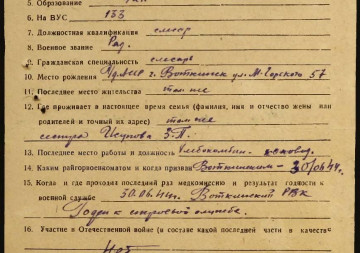 5. Образование
6. На ВУС 133
7. Должностная квалификация слесар
8. Военное звание Ряд.
9. Гражданская специальность слесарь
10. Место рождения УдАССР г. Воткинск ул. М-Горского 57
11. Последнее место жительства там же
12. Где проживает в настоящее время семья (фамилия, имя и отчество жены или
родителей и точный их адрес) там же
сестра З-П.
13. Последнее место работы и должность
14. Каким райгорвоенкоматом и когда призван Воткинским - 30/06 44 г.
15. Когда и где проходил последний раз медкомиссию и результат годности к
военной службе 30.06.44 г. Воткинский РВК
Годен к строевой службе.
16. Участие в Отечественной войне (в составе какой последней части в качеств
Нет